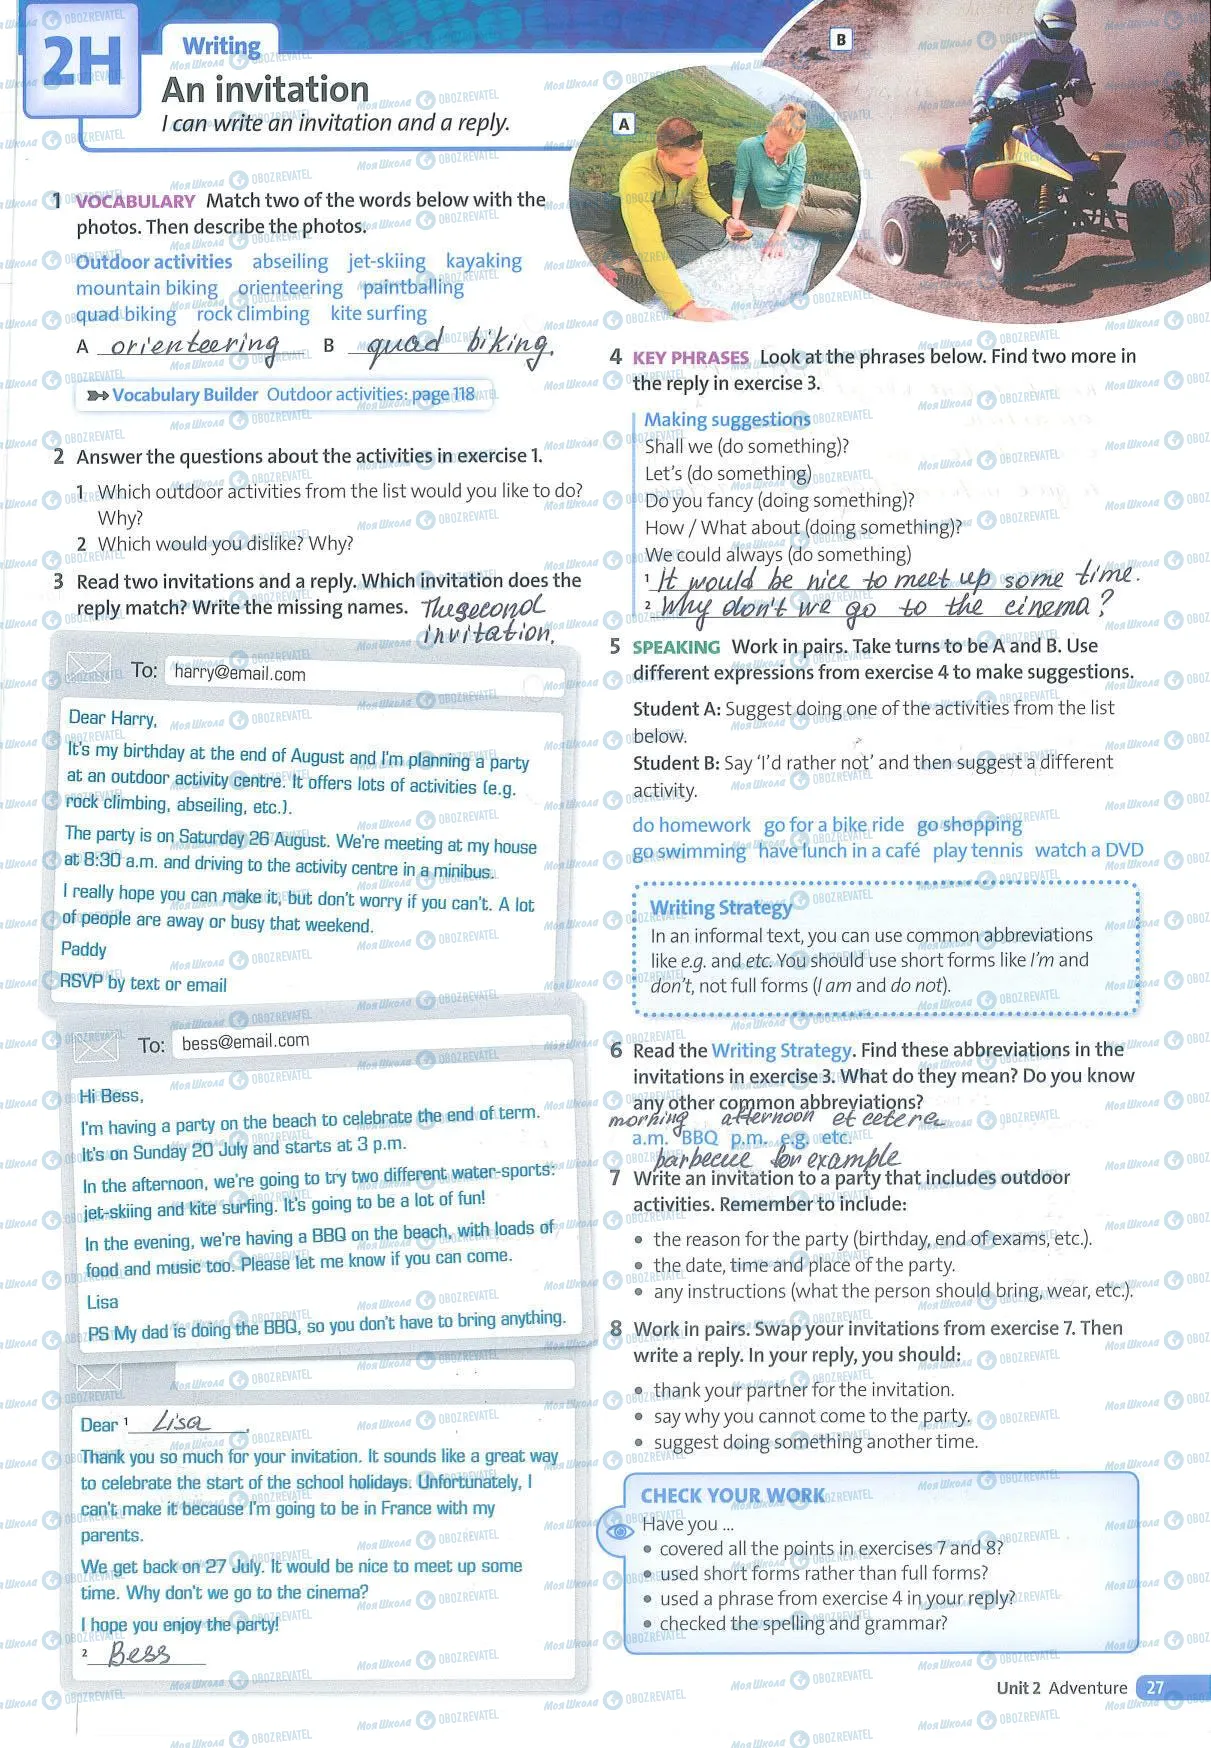 2H
Writing
An invitation
I can write an invitation and a reply.
A
B
1 VOCABULARY Match two of the words below with the
photos. Then describe the photos.
Outdoor activities abseiling jet-skiing kayaking
mountain biking orienteering paintballing
quad biking rock climbing kite surfing
A orienteering B quad biking.
Vocabulary Builder Outdoor activities: page 118
2 Answer the questions about the activities in exercise 1.
1 Which outdoor activities from the list would you like to do?
Why?
2 Which would you dislike? Why?
3 Read two invitations and a reply. Which invitation does the
reply match? Write the missing names. The second
invitation.
To: harry@email.com
Dear Harry,
It's my birthday at the end of August and I'm planning a party
at an outdoor activity centre. It offers lots of activities (e.g.
rock climbing, abseiling, etc.).
The party is on Saturday 26 August. We're meeting at my house
at 8:30 a.m. and driving to the activity centre in a minibus.
I really hope you can make it, but don't worry if you can't. A lot
of people are away or busy that weekend.
Paddy
RSVP by text or email
To: bess@email.com
Hi Bess,
I'm having a party on the beach to celebrate the end of term.
It's on Sunday 20 July and starts at 3 p.m.
In the afternoon, we're going to try two different water-sports:
jet-skiing and kite surfing. It's going to be a lot of fun!
In the evening, we're having a BBQ on the beach, with loads of
food and music too. Please let me know if you can come.
Lisa
PS My dad is doing the BBQ, so you don't have to bring anything.
Dear 1 Lisa,
Thank you so much for your invitation. It sounds like a great way
to celebrate the start of the school holidays. Unfortunately, I
can't make it because I'm going to be in France with my
parents.
We get back on 27 July. It would be nice to meet up some
time. Why don't we go to the cinema?
I hope you enjoy the party!
2 Bess
4 KEY PHRASES Look at the phrases below. Find two more in
the reply in exercise 3.
Making suggestions
Shall we (do something)?
Let's (do something)
Do you fancy (doing something)?
How / What about (doing something)?
We could always (do something)
1 It would be nice to meet up some time.
2 Why don't we go to the cinema?
5 SPEAKING Work in pairs. Take turns to be A and B. Use
different expressions from exercise 4 to make suggestions.
Student A: Suggest doing one of the activities from the list
below.
Student B: Say 'I'd rather not' and then suggest a different
activity.
do homework go for a bike ride go shopping
go swimming have lunch in a café play tennis watch a DVD
Writing Strategy
In an informal text, you can use common abbreviations
like e.g. and etc. You should use short forms like I'm and
don't, not full forms (I am and do not).
6 Read the Writing Strategy. Find these abbreviations in the
invitations in exercise 3. What do they mean? Do you know
any other common abbreviations?
morning afternoon et cetera
a.m. BBQ p.m. e.g. etc.
barbecue for example
7 Write an invitation to a party that includes outdoor
activities. Remember to include:
• the reason for the party (birthday, end of exams, etc.).
• the date, time and place of the party.
• any instructions (what the person should bring, wear, etc.).
8 Work in pairs. Swap your invitations from exercise 7. Then
write a reply. In your reply, you should:
• thank your partner for the invitation.
• say why you cannot come to the party.
• suggest doing something another time.
CHECK YOUR WORK
Have you ...
• covered all the points in exercises 7 and 8?
• used short forms rather than full forms?
• used a phrase from exercise 4 in your reply?
• checked the spelling and grammar?
Unit 2 Adventure 27
Моя Школа OBOZREVATEL